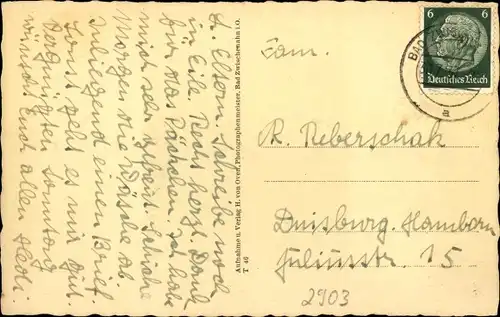 L. Eltern. Schreibe noch
in Eile. Recht herzl. Dank
für das Päckchen. Ich habe
mich sehr gefreut. Schicke
Morgen die Wäsche ab.
Inliegend einen Brief.
Sonst geht es mir gut.
Vergnügten Sonntag
wünscht Euch allen
Aufnahme u. Verlag H. von Oven, Photographenmeister, Bad Zwischenahn i.O.
T 46
6 6
Deutsches Reich
BAD
a
Fam.
R. Reberschak
Duisburg-Hamborn
Juliusstr. 15
2903